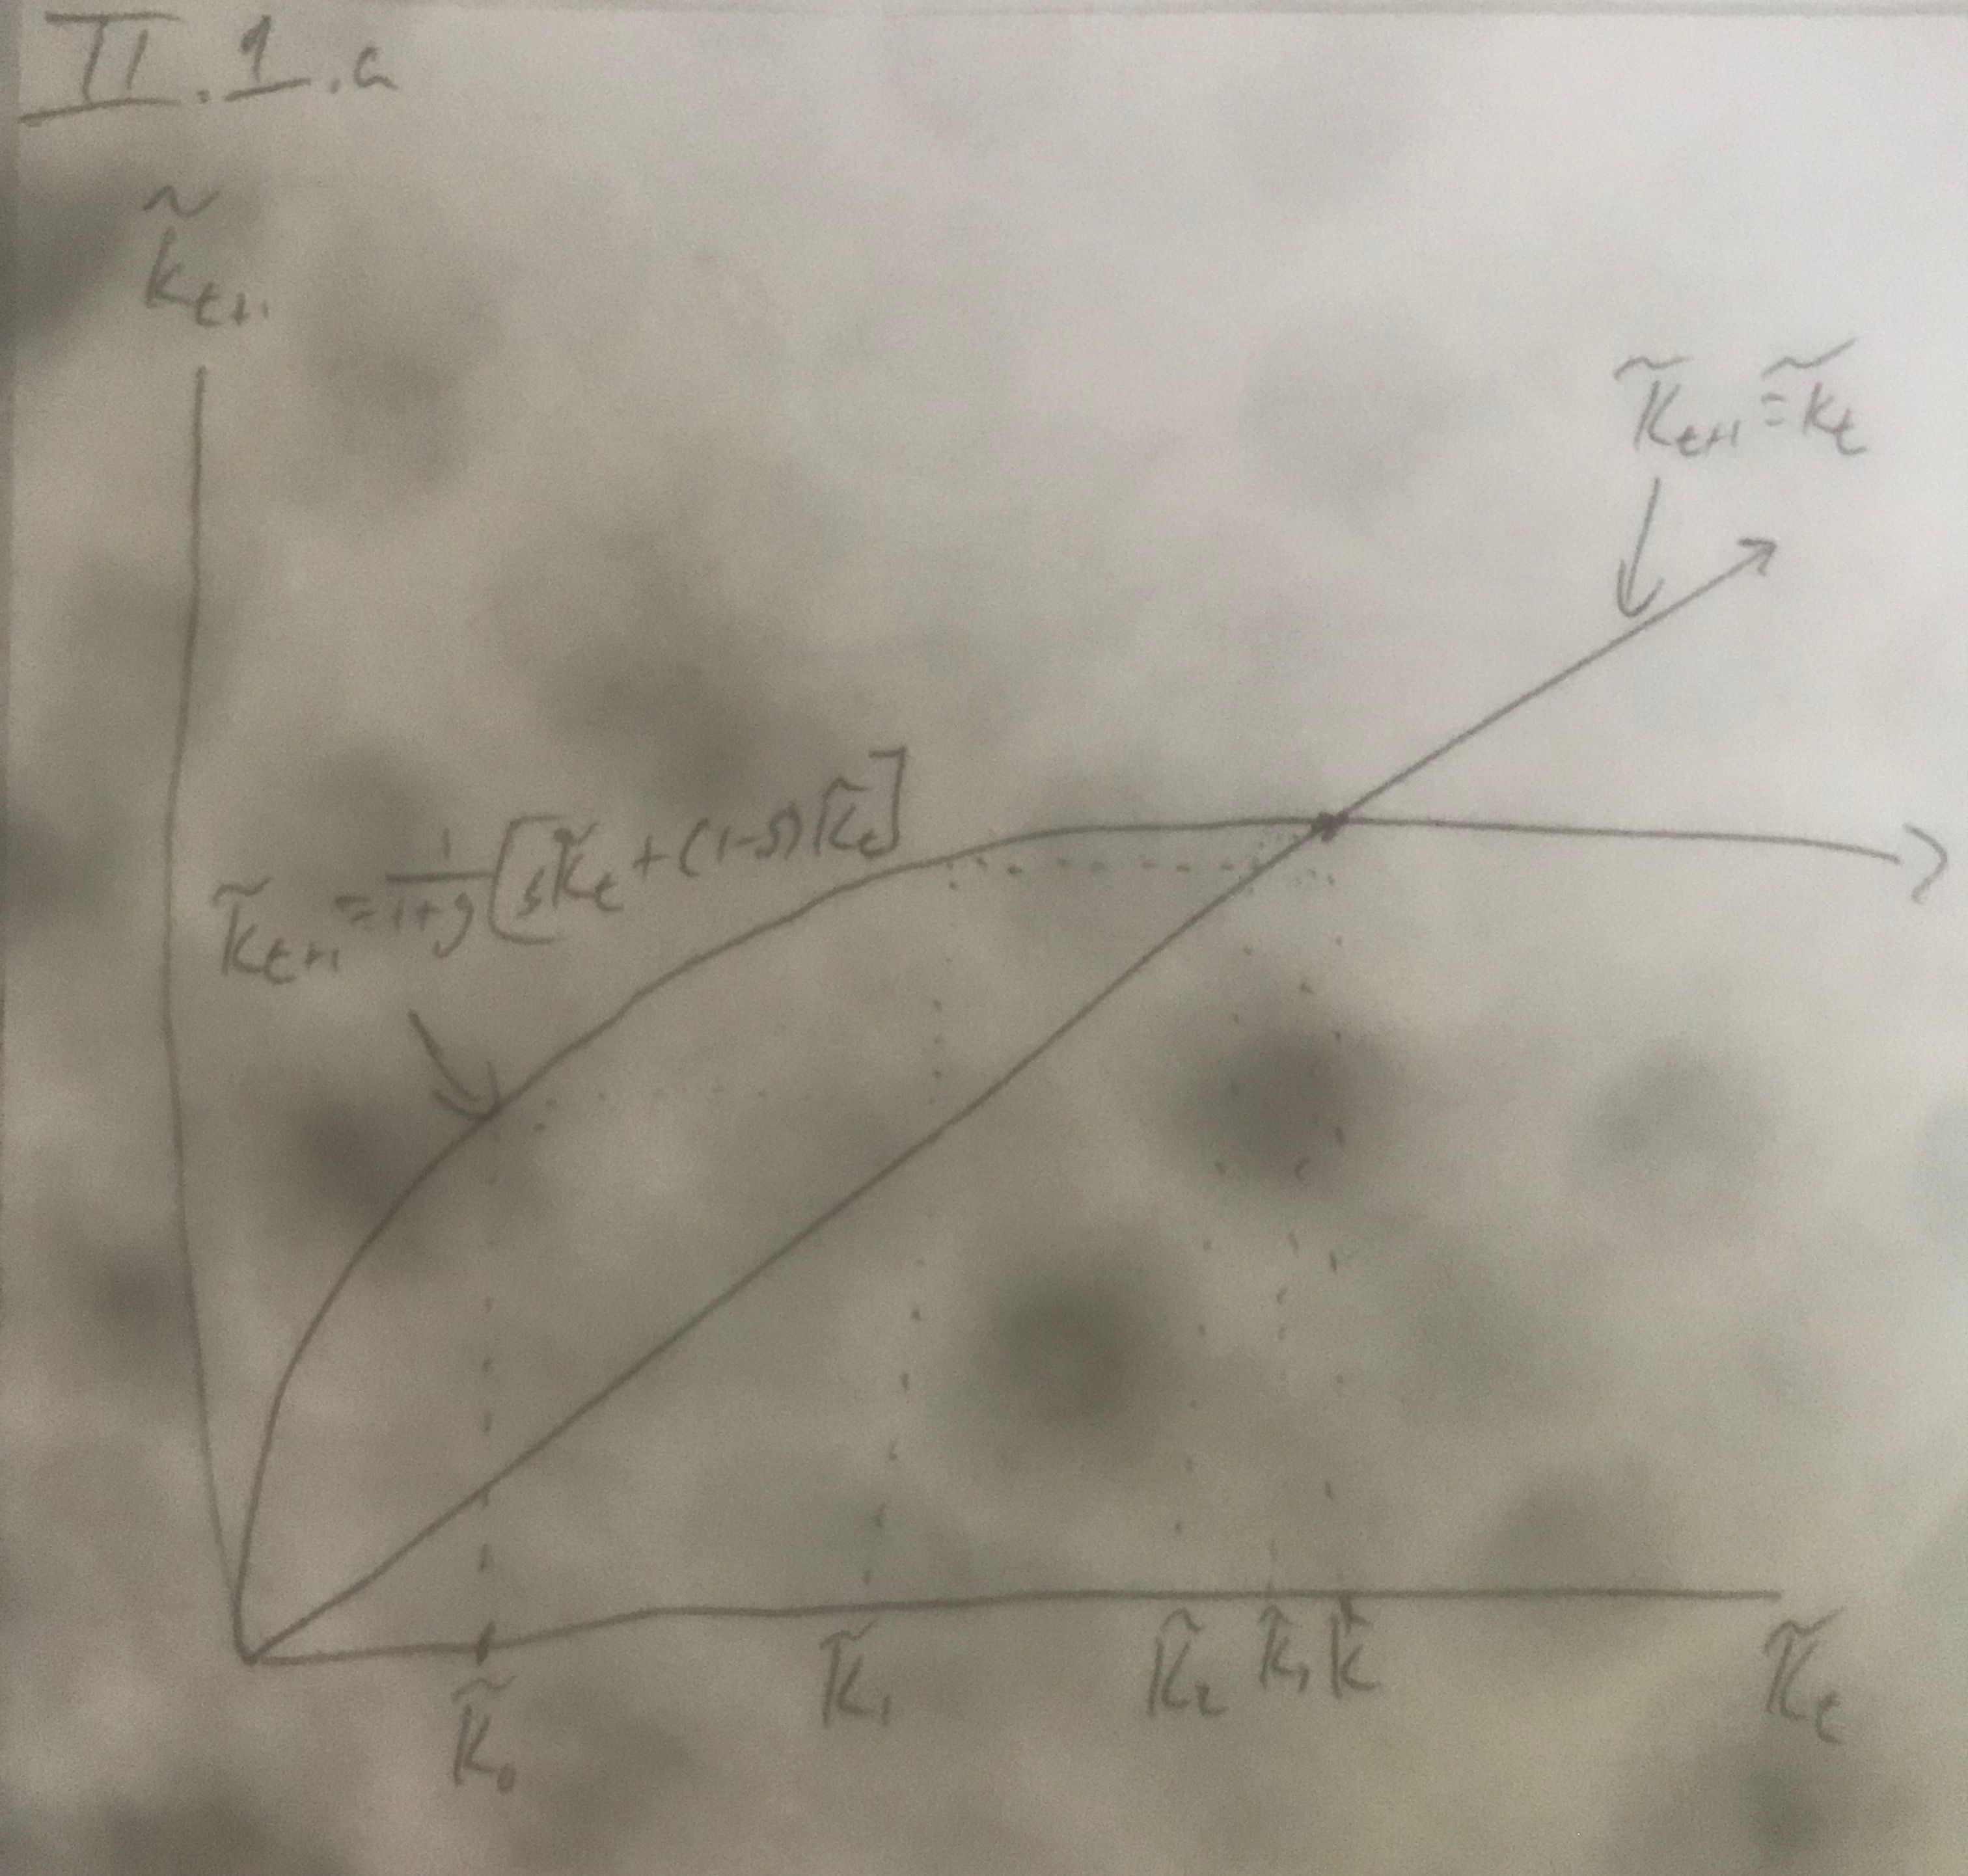 II.1.a
k̃ₜ₊₁
k̃ₜ₊₁ = k̃ₜ
k̃ₜ₊₁ = 1/(1+g) [s k̃ₜ + (1-δ) k̃ₜ]
k̃₀ k̃₁ k̃₂ k̃, k̃ k̃ₜ